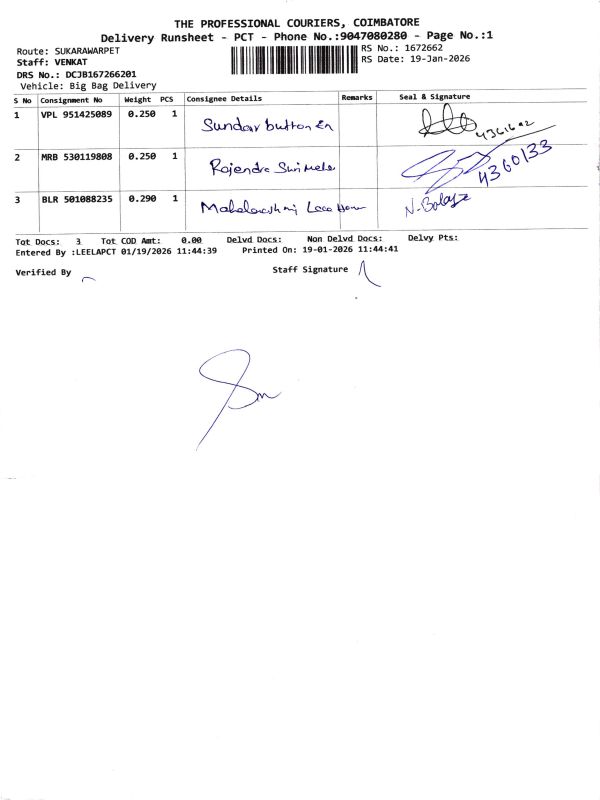 THE PROFESSIONAL COURIERS, COIMBATORE
Delivery Runsheet - PCT - Phone No.:9047080280 - Page No.:1
Route: SUKARAWARPET
RS No.: 1672662
Staff: VENKAT
RS Date: 19-Jan-2026
DRS No.: DCJB167266201
Vehicle: Big Bag Delivery
S No Consignment No Weight PCS Consignee Details Remarks Seal & Signature
1 VPL 951425089 0.250 1 Sundar button En
2 MRB 530119808 0.250 1 Rajendra 4360133
3 BLR 501088235 0.290 1 Lace N. Balaji
Tot Docs: 3 Tot COD Amt: 0.00 Delvd Docs: Non Delvd Docs: Delvy Pts:
Entered By :LEELAPCT 01/19/2026 11:44:39 Printed On: 19-01-2026 11:44:41
Verified By Staff Signature